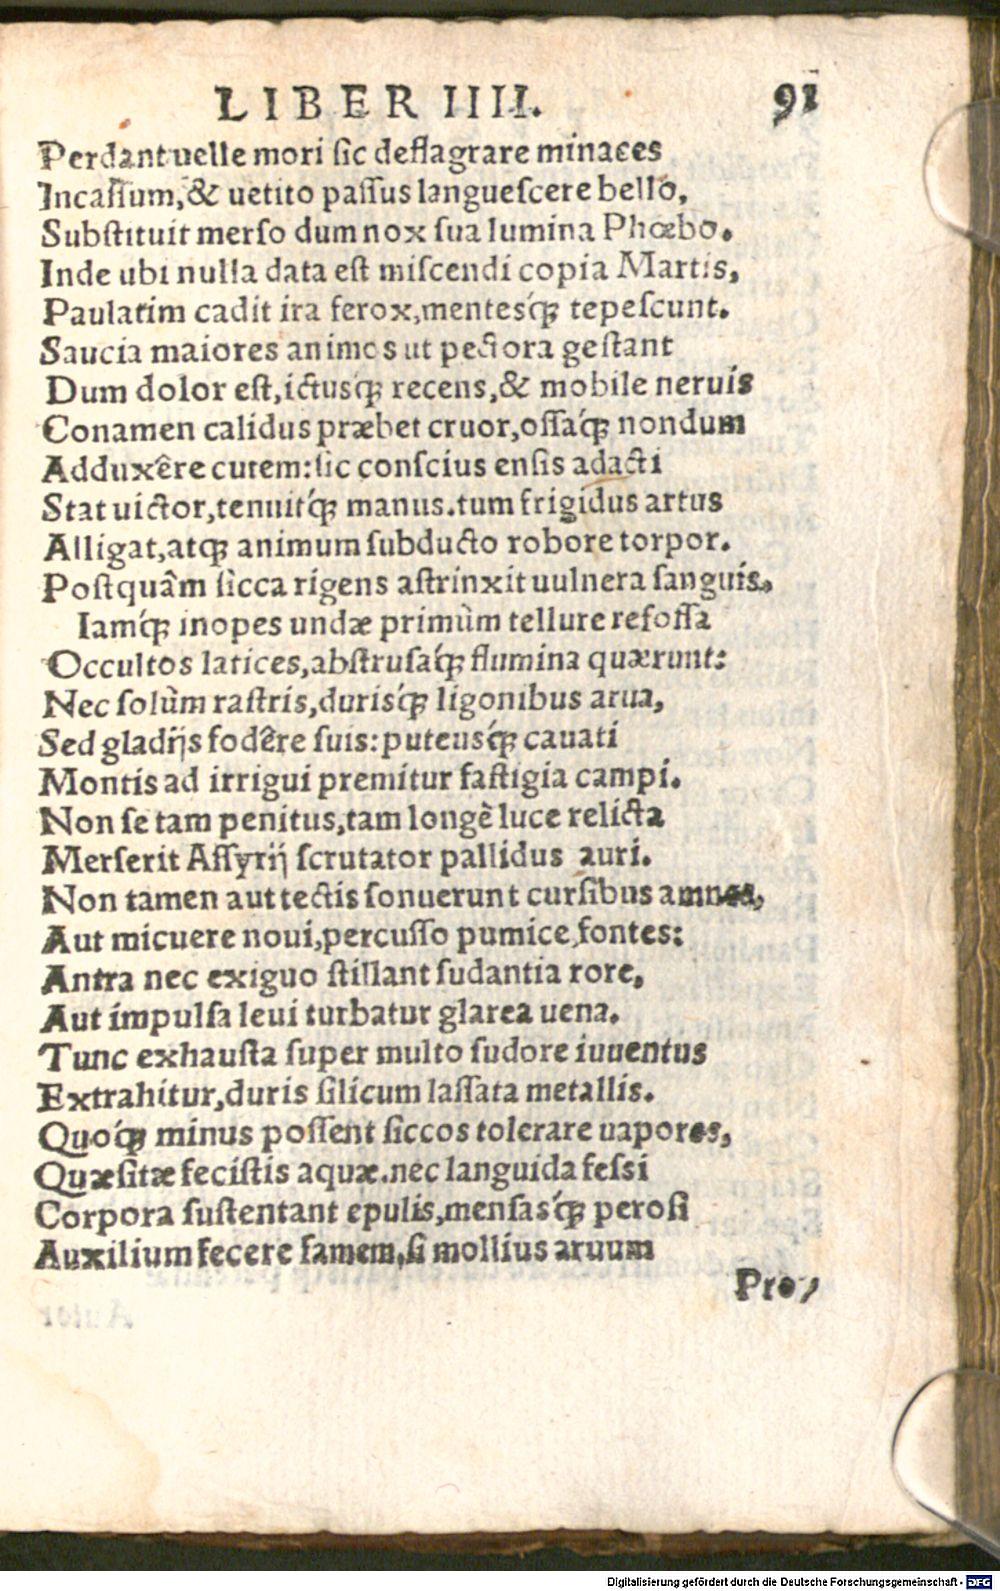 LIBER IIII. 91
Perdant uelle mori ſic deflagrare minaces
Incaſſum,& uetito paſſus langueſcere bello,
Subſtituit merſo dum nox ſua lumina Phœbo.
Inde ubi nulla data eſt miſcendi copia Martis,
Paulatim cadit ira ferox,mentesq́; tepeſcunt.
Saucia maiores animos ut pectora geſtant
Dum dolor eſt,ictusq́; recens,& mobile neruis
Conamen calidus præbet cruor,oſſaq́; nondum
Adduxêre cutem:ſic conſcius enſis adacti
Stat uictor,tenuitq́; manus.tum frigidus artus
Alligat,atq; animum ſubducto robore torpor.
Poſtquâm ſicca rigens aſtrinxit uulnera ſanguis,
Iamq́; inopes undæ primùm tellure refoſſa
Occultos latices,abſtruſaq́; flumina quærunt:
Nec ſolùm raſtris,durisq́; ligonibus arua,
Sed gladijs fodêre ſuis:puteusq́; cauati
Montis ad irrigui premitur faſtigia campi.
Non ſe tam penitus,tam longè luce relicta
Merſerit Aſſyrij ſcrutator pallidus auri.
Non tamen aut tectis ſonuerunt curſibus amnes,
Aut micuere noui,percuſſo pumice,fontes:
Antra nec exiguo ſtillant ſudantia rore,
Aut impulſa leui turbatur glarea uena.
Tunc exhauſta ſuper multo ſudore iuuentus
Extrahitur,duris ſilicum laſſata metallis.
Quoq́; minus poſſent ſiccos tolerare uapores,
Quæſitæ feciſtis aquæ.nec languida feſſi
Corpora ſuſtentant epulis,menſasq́; peroſi
Auxilium fecere famem,ſi mollius aruum
Pro⸗
Digitalisierung gefördert durch die Deutsche Forschungsgemeinschaft - DFG